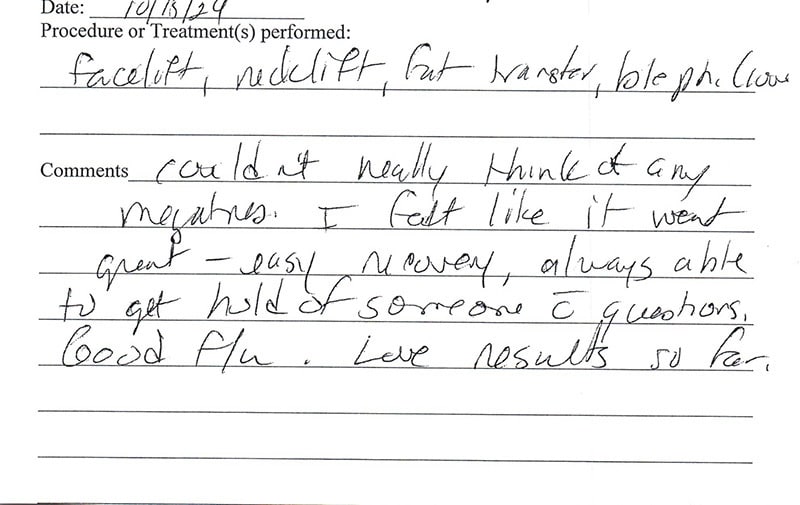 Date: 10/15/24
Procedure or Treatment(s) performed:
facelift, necklift, fat transfer, bleph, (low
Comments couldn't really think of any
negatives. I felt like it went
great – easy recovery, always able
to get hold of someone c̄ questions.
Good f/u. Love results so far.